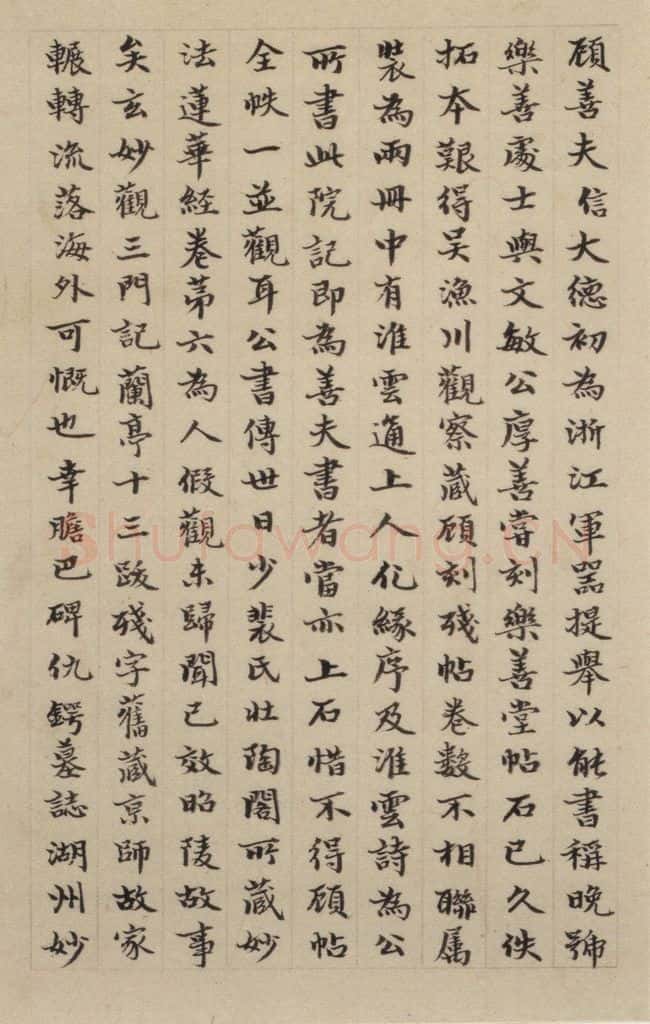 顧善夫信大德初為浙江軍器提舉以能書稱晚號
樂善處士與文敏公厚善嘗刻樂善堂帖石已久佚
拓本艱得吴漁川觀察藏顧刻殘帖卷數不相聯属
裝為兩冊中有淮雲通上人化緣序及淮雲詩為公
所書此院記即為善夫書者當亦上石惜不得顧帖
全帙一並觀耳公書傳世日少裴氏壯陶閣所藏妙
法蓮華經卷苐六為人假觀未歸聞已效昭陵故事
矣玄妙觀三門記蘭亭十三跋殘字舊藏京師故家
輾轉流落海外可慨也幸膽巴碑仇鍔墓誌湖州妙
Shufawang.CN